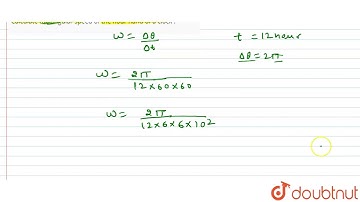 calculate the angular speed of the hour hand of a clock?
ω = Δθ / Δt
t = 12 hour
Δθ = 2π
ω = 2π / 12×60×60
ω = 2π / 12×6×6×10²
doubtnut